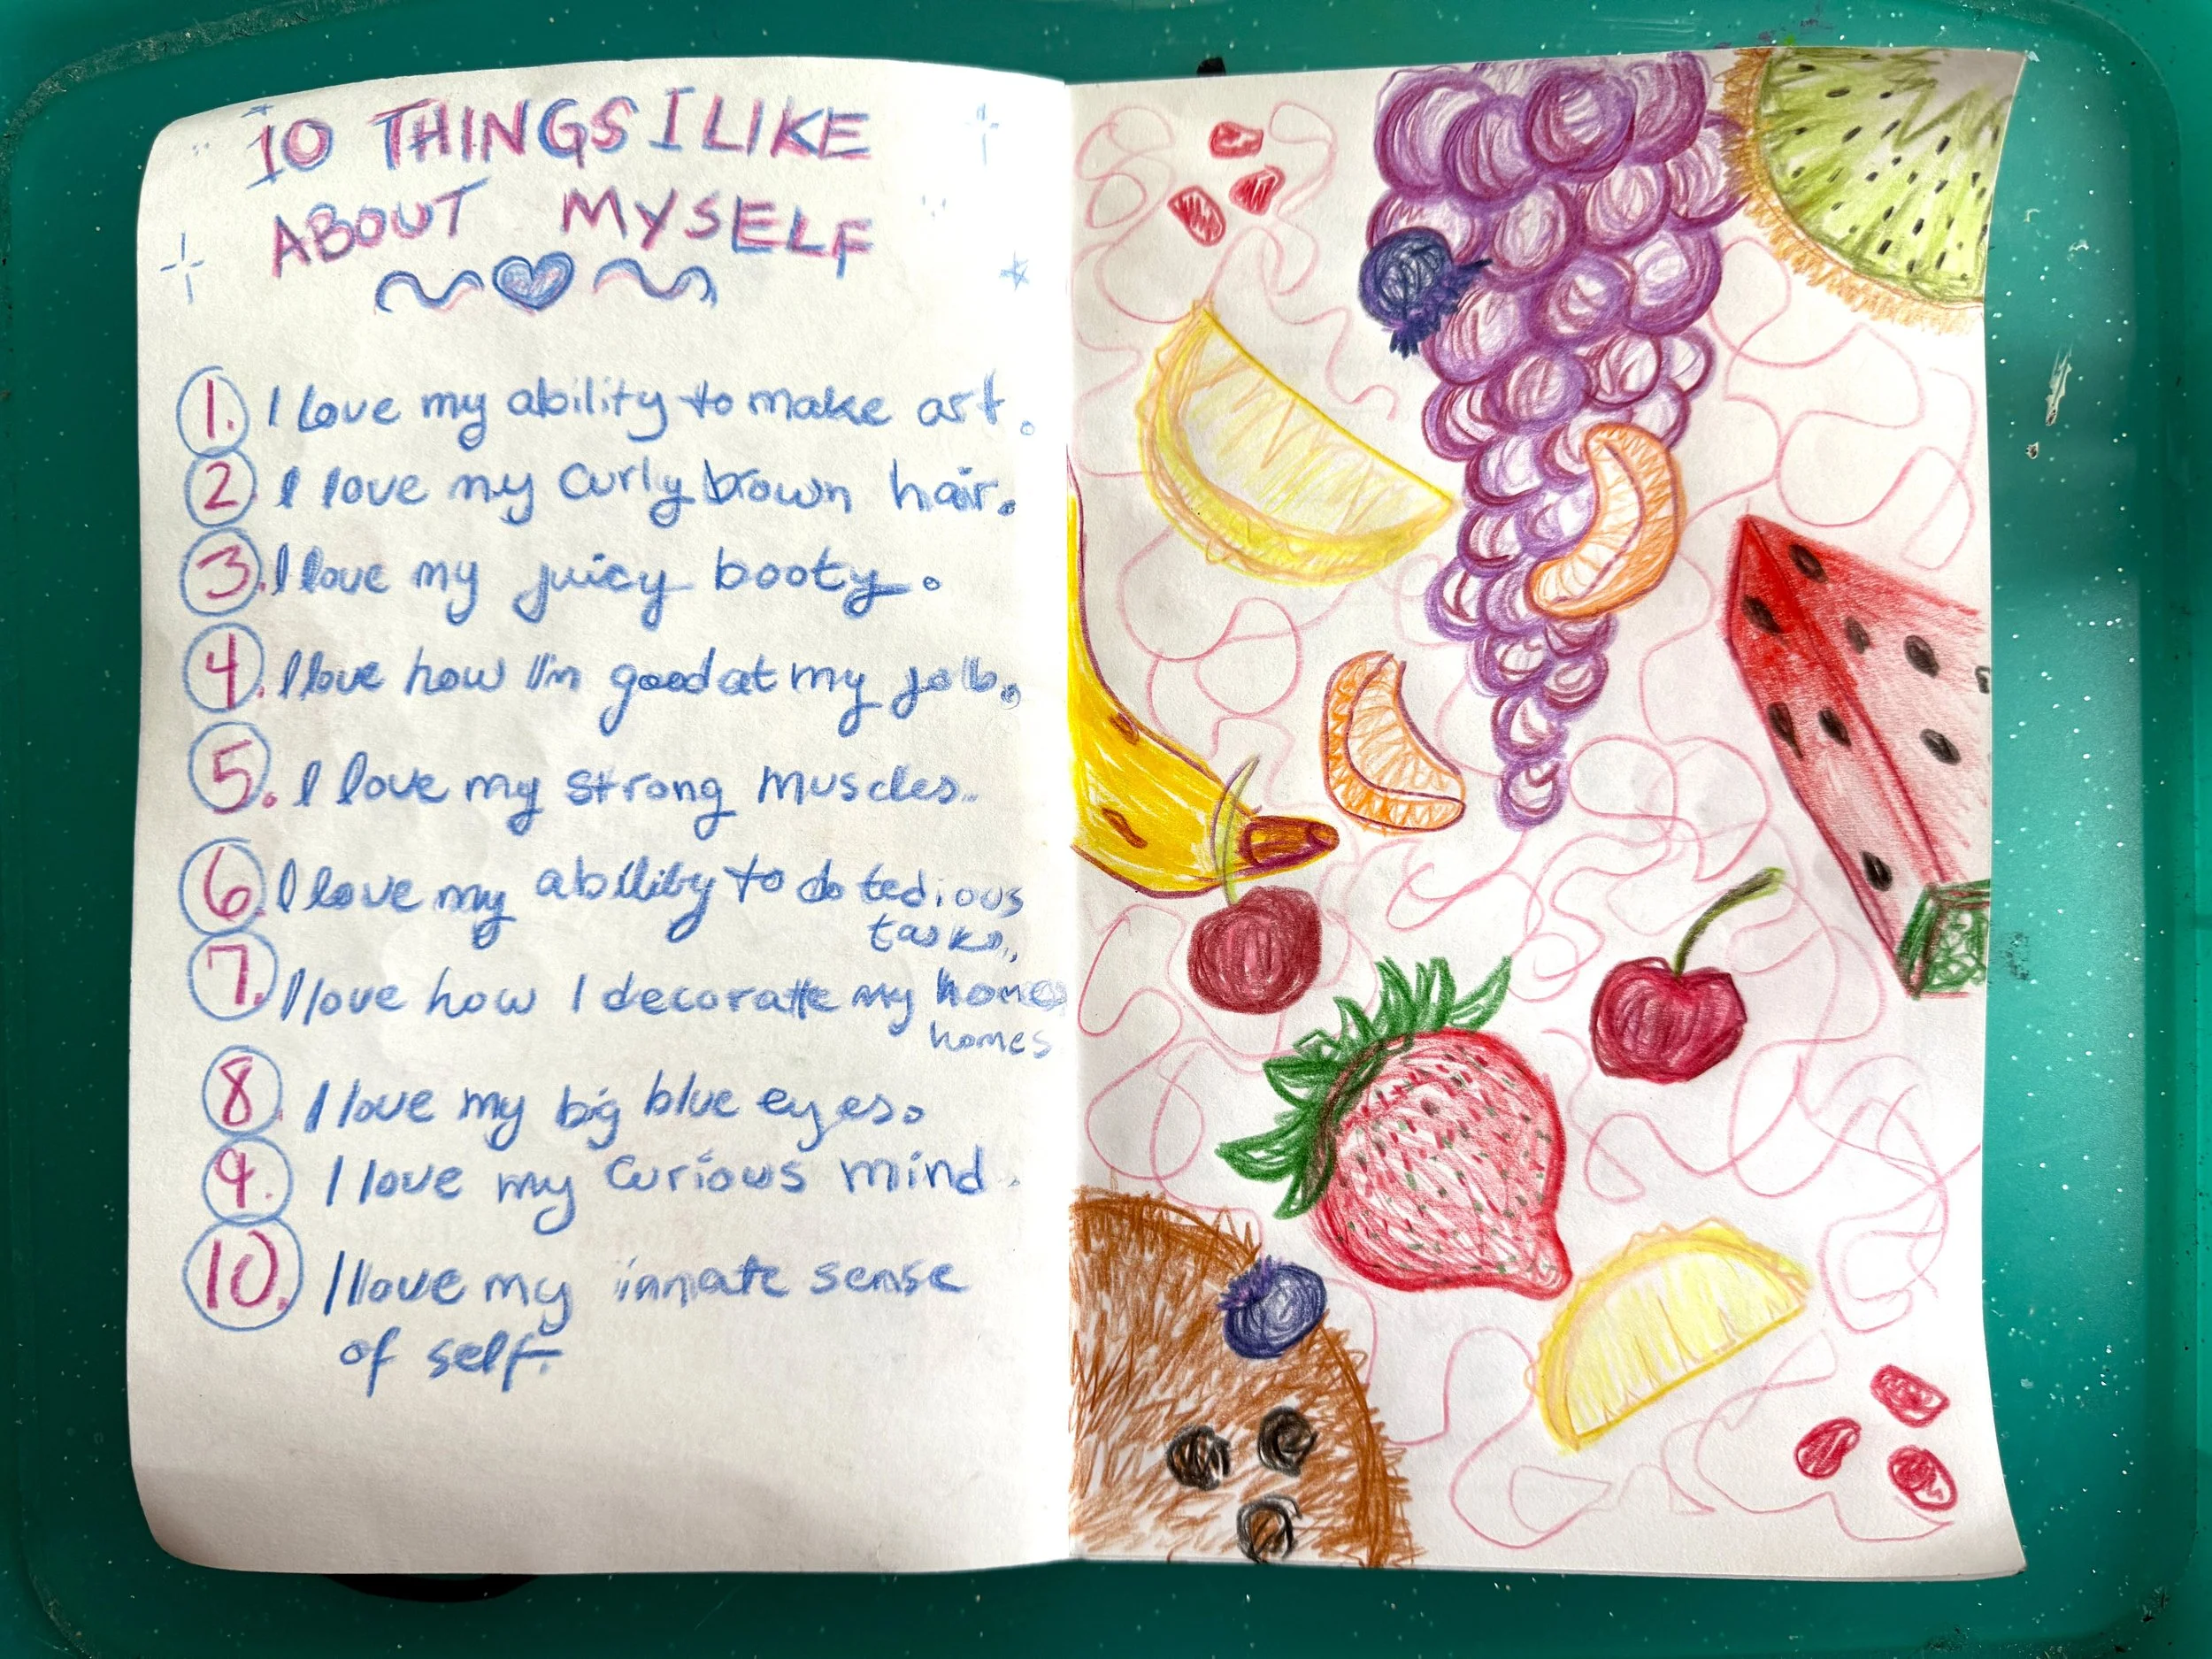 10 THINGS I LIKE
ABOUT MYSELF
1. I love my ability to make art.
2. I love my curly brown hair.
3. I love my juicy booty.
4. I love how I'm good at my job.
5. I love my strong muscles.
6. I love my ability to do tedious
tasks.
7. I love how I decorate my homes
homes
8. I love my big blue eyes.
9. I love my curious mind.
10. I love my innate sense
of self.